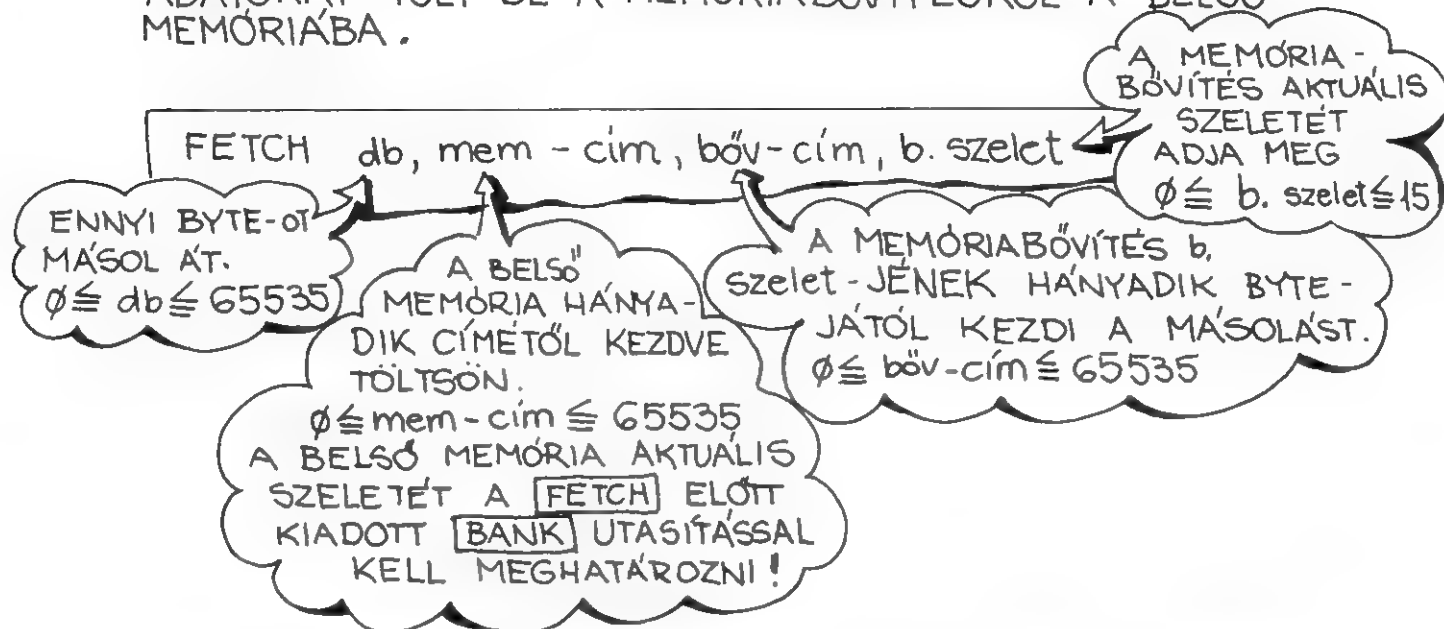 ADATOKAT TÖLT BE A MEMÓRIABŐVÍTÉSRŐL A BELSŐ
MEMÓRIÁBA.
FETCH db, mem - cím, bőv-cím, b. szelet
A MEMÓRIA-
BŐVÍTÉS AKTUÁLIS
SZELETÉT
ADJA MEG
Ø ≦ b. szelet ≦ 15
ENNYI BYTE-OT
MÁSOL ÁT.
Ø ≦ db ≦ 65535
A BELSŐ
MEMÓRIA HÁNYA-
DIK CÍMÉTŐL KEZDVE
TÖLTSÖN.
Ø ≦ mem-cím ≦ 65535
A BELSŐ MEMÓRIA AKTUÁLIS
SZELETÉT A FETCH ELŐTT
KIADOTT BANK UTASÍTÁSSAL
KELL MEGHATÁROZNI!
A MEMÓRIABŐVÍTÉS b.
szelet-JÉNEK HÁNYADIK BYTE-
JÁTÓL KEZDI A MÁSOLÁST.
Ø ≦ bőv-cím ≦ 65535